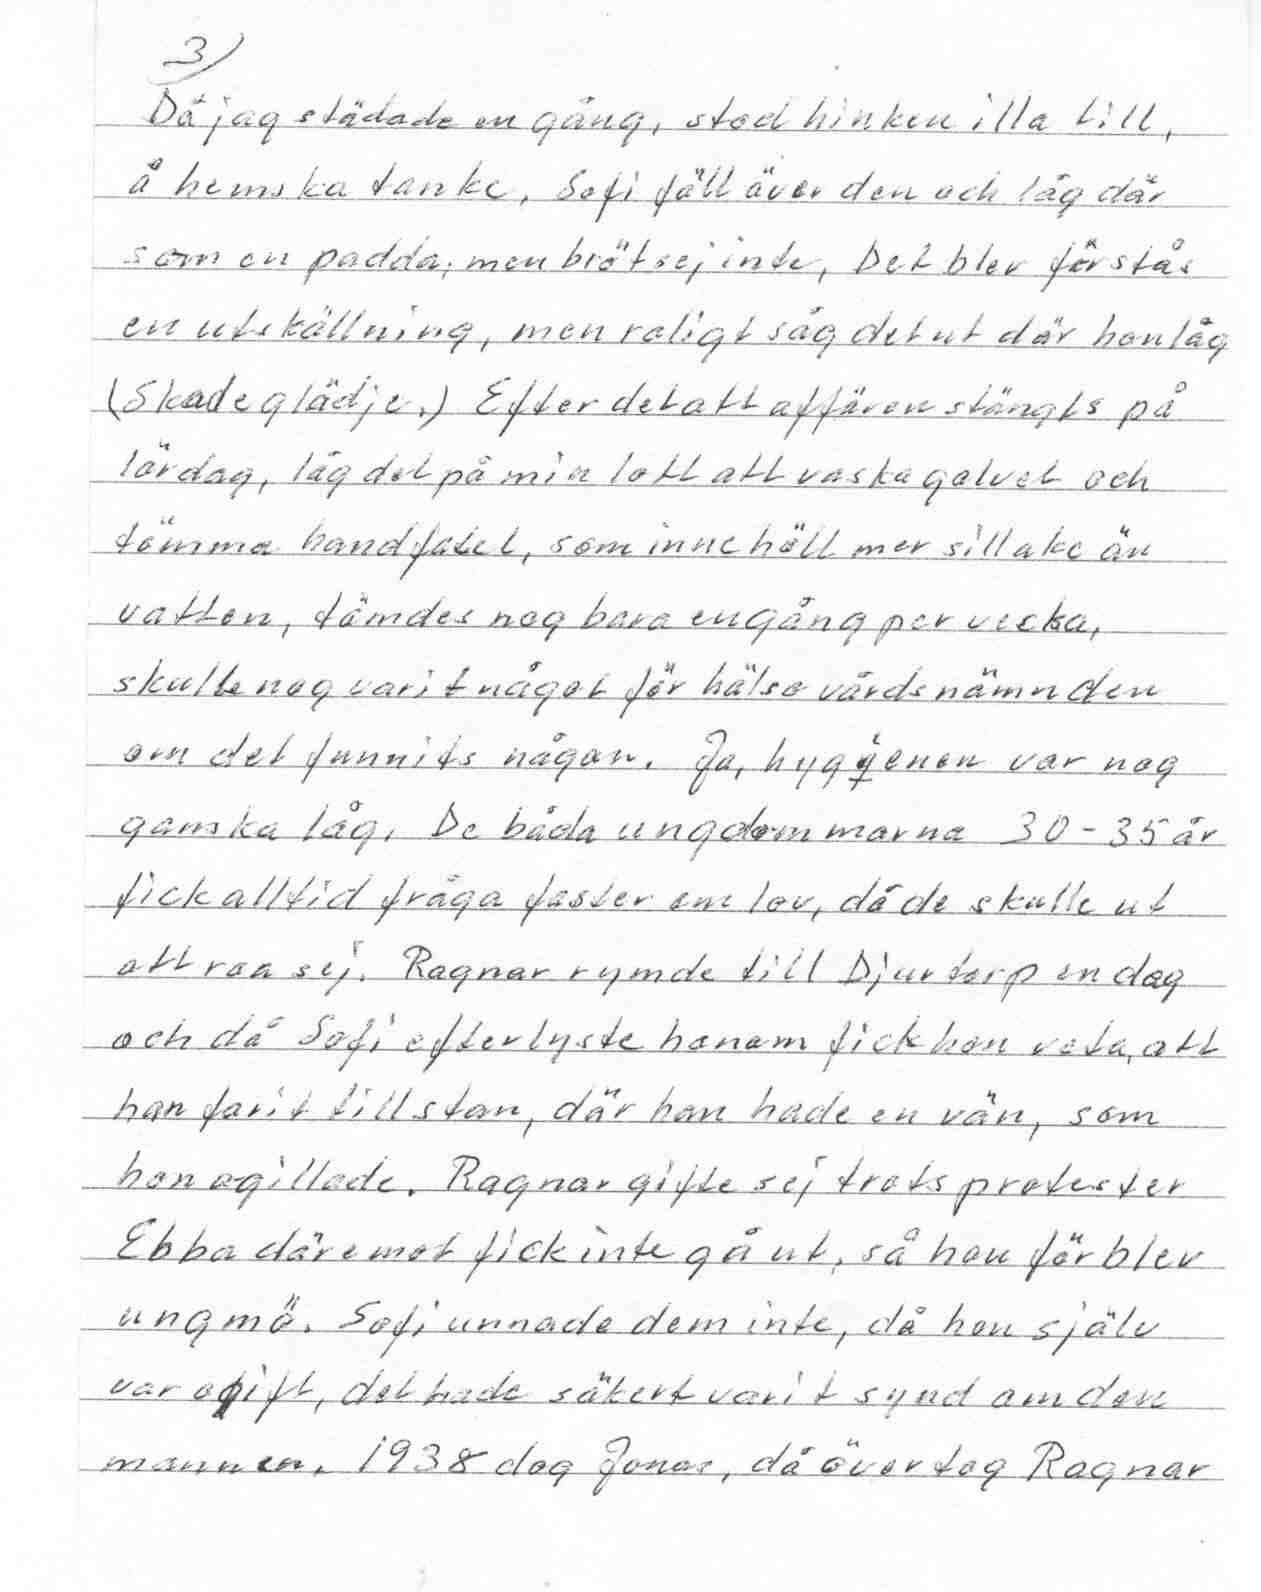 3)
Då jag städade en gång, stod hinken illa till,
å hemska tanke, Sofi föll över den och låg där
som en padda, men bröt sej inte, Det blev förstås
en utskällning, men roligt såg det ut där hon låg
(Skadeglädje.) Efter det att affären stängts på
lördag, låg det på min lott att vaska golvet och
tömma handfatet, som innehöll mer sillake än
vatten, tömdes nog bara en gång per vecka,
skulle nog varit något för hälsovårdsnämnden
om det funnits någon. Ja, hygienen var nog
ganska låg. De båda ungdommarna 30-35 år
fick alltid fråga faster om lov, då de skulle ut
att roa sej. Ragnar rymde till Djurtorp en dag
och då Sofi efterlyste honom fick hon veta, att
han farit till stan, där han hade en vän, som
hon ogillade. Ragnar gifte sej trots protester
Ebba däremot fick inte gå ut, så hon förblev
ungmö. Sofi unnade dem inte, då hon själv
var ogift, det hade säkert varit synd om den
mannen. 1938 dog Jonas, då övertog Ragnar